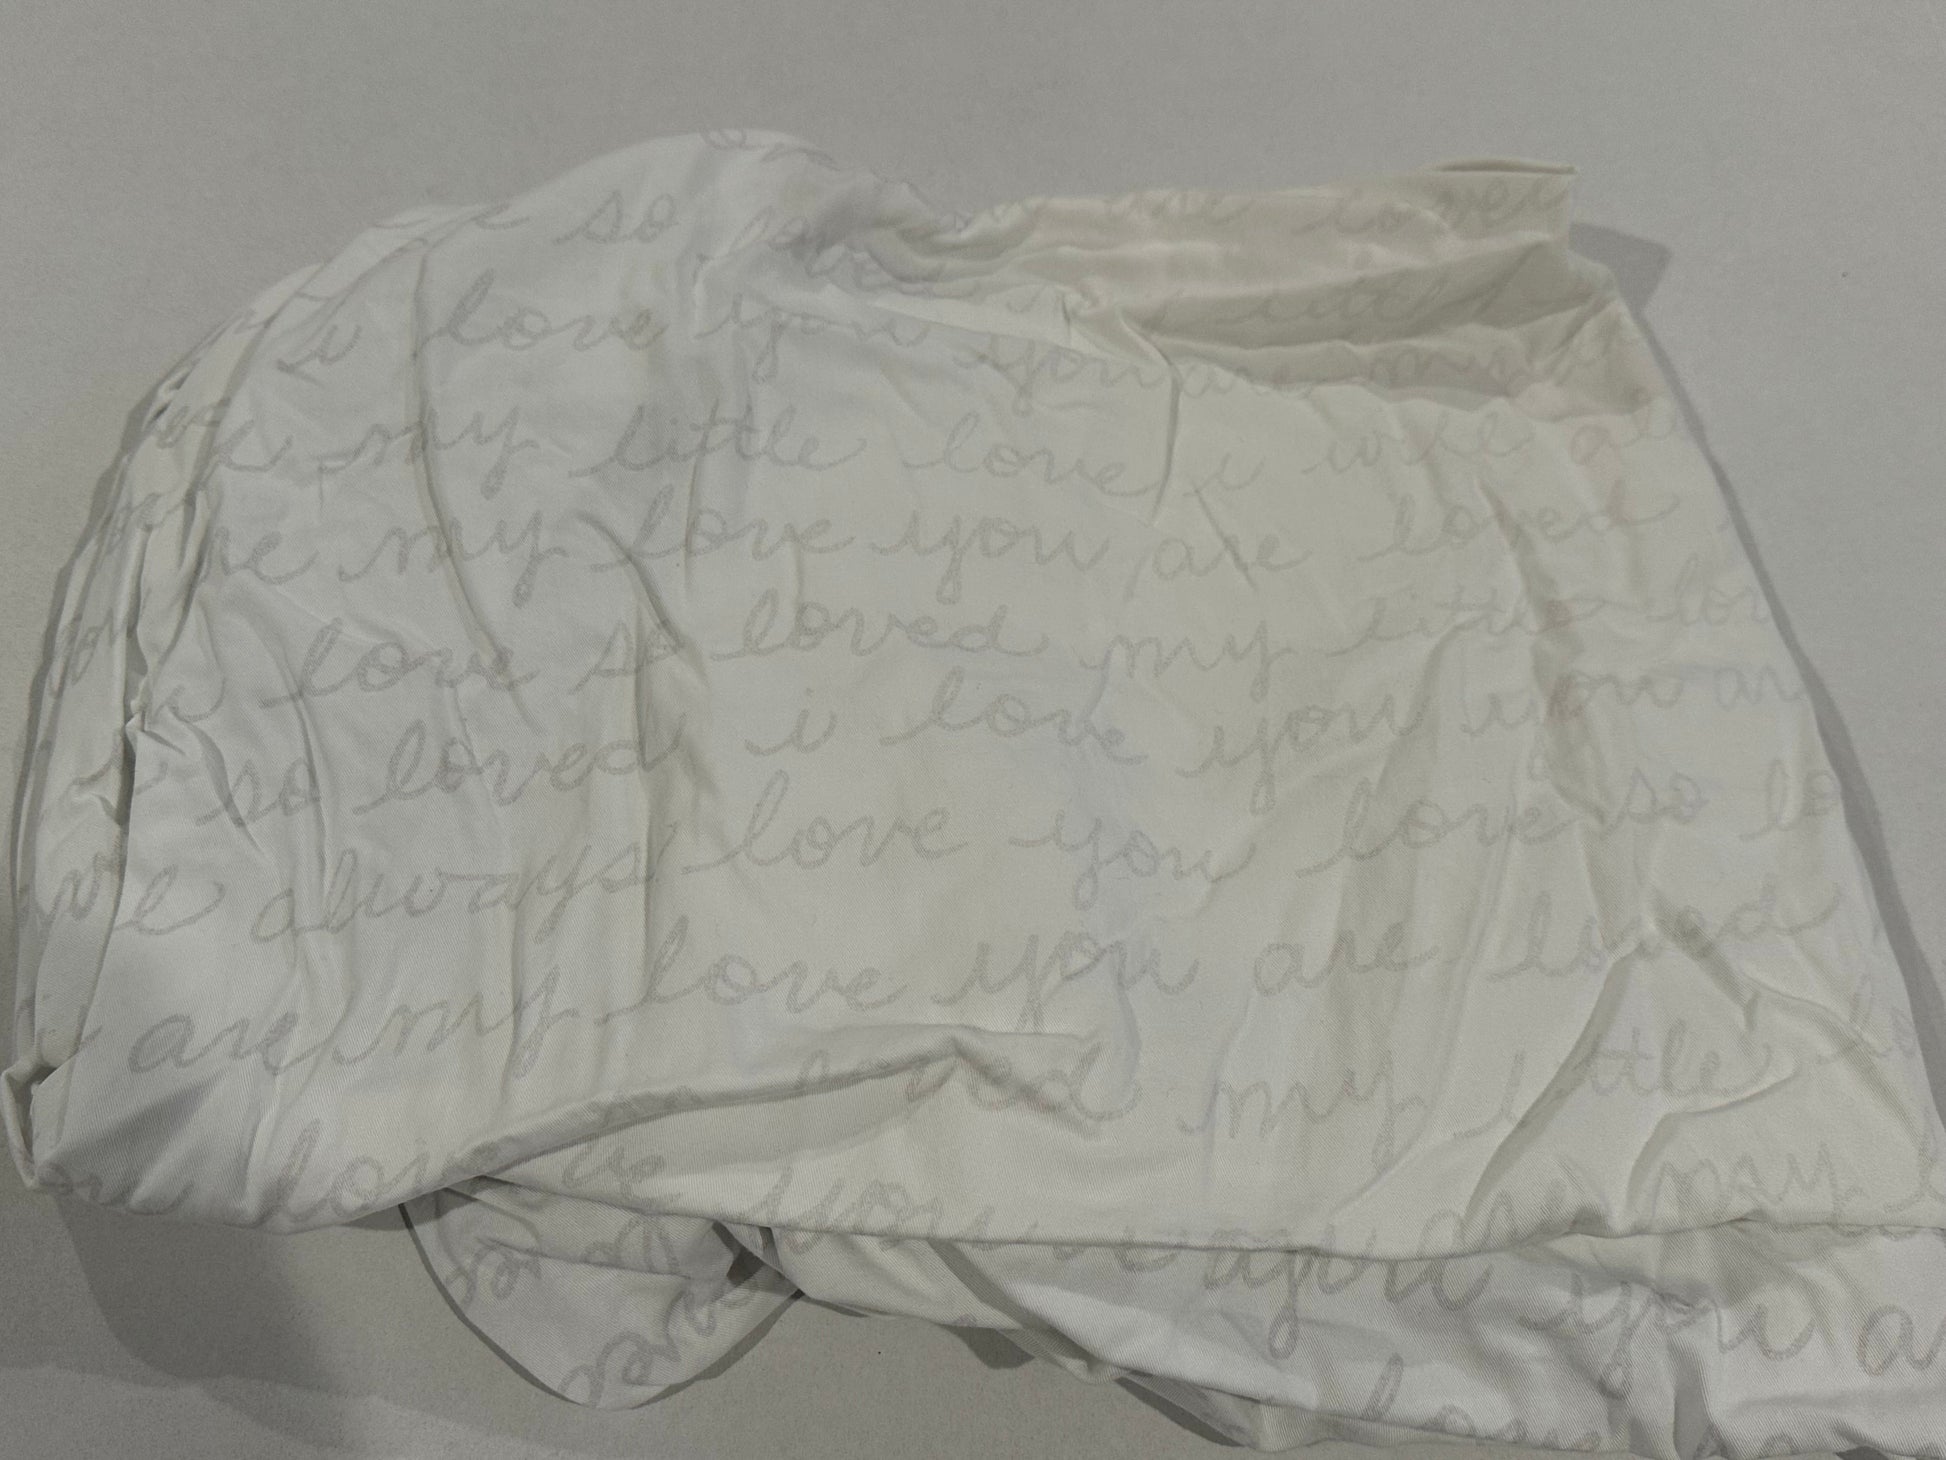 so
are loved
i love you little
you are my
my little love i will al
my love you are loved
love so loved my little lov
so loved i love you you ar
always love you love so lo
are my love you are loved
loved my little lo
lov
you are my l
you a
love so